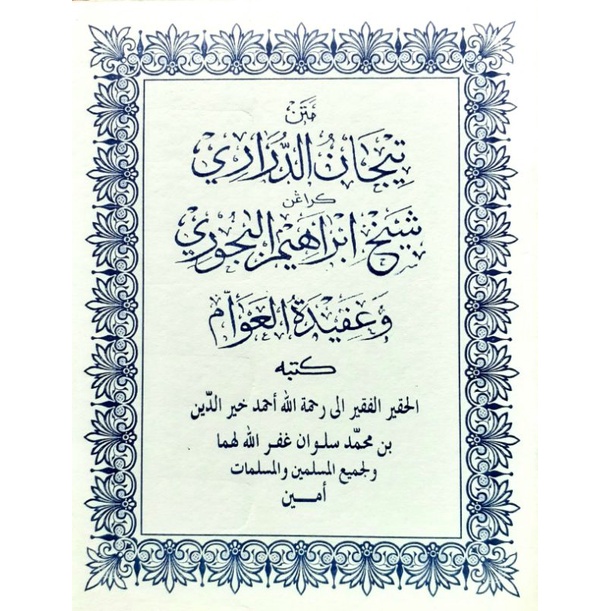 مَتَن
تِيجَانُ الدَّرَارِي
كراڠن
شَيْخ اِبْرَاهِيْم البَجُوْرِي
وَعَقِيْدَةُ العَوَامّ
كتبه
الحقير الفقير الى رحمة الله أحمد خير الدّين
بن محمّد سلوان غفر الله لهما
ولجميع المسلمين والمسلمات
أمين